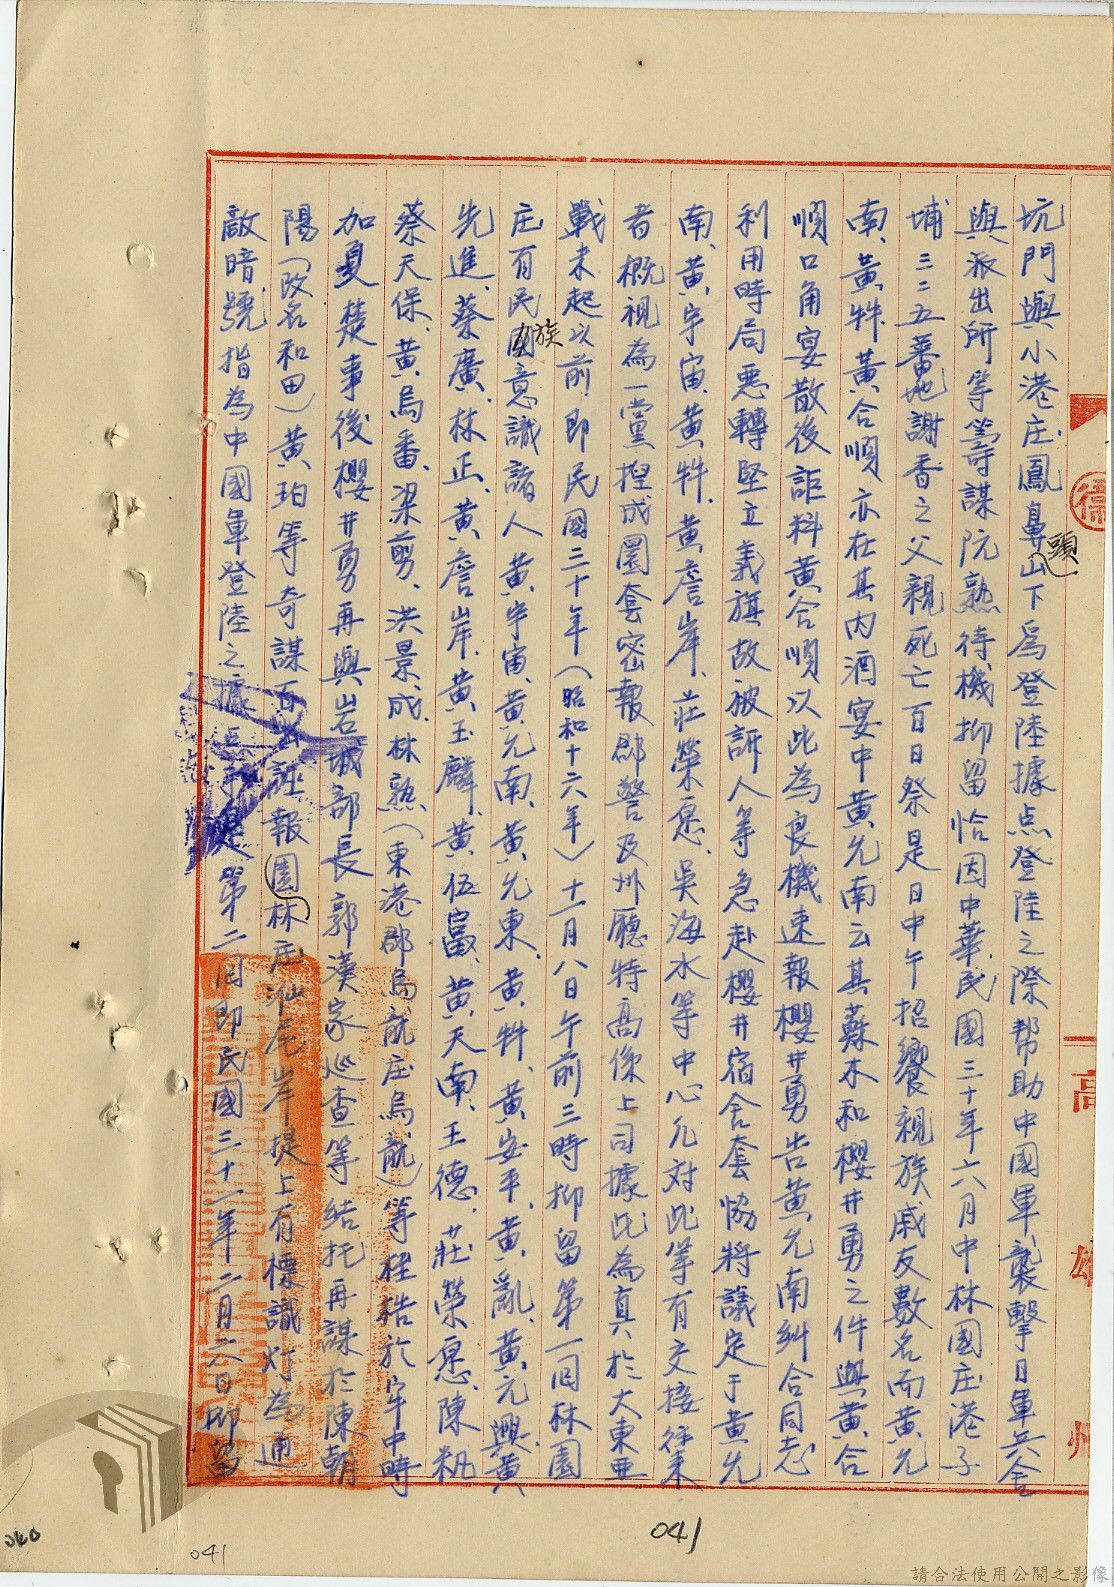 坑門與小港庄鳳鼻頭山下為登陸據点登陸之際帮助中國軍襲擊日軍兵舍
與派出所等等謀阮熟待機抑留恰因中華民國三十年六月中林園庄港子
埔三二五番地謝香之父親死亡百日祭是日中午招饗親族戚友數名而黃允
南、黃牪、黃合順亦在其內酒宴中黃允南云其蘇木和櫻井勇之件與黃合
順口角宴散後詎料黃合順以此為良機速報櫻井勇告黃允南糾合同志
利用時局惡轉堅立義旗故被訴人等急赴櫻井宿舍套協將議定于黃允
南、黃宇宙、黃牪、黃詹岸、莊榮愿、吳海水等中心凡対此等有交接往來
者概視為一黨捏成圈套密報郡警及州廳特高係上司據此為真於大東亜
戰未起以前即民國三十年（昭和十六年）十一月八日午前三時抑留第一回林園
庄有民族意識諸人黃宇宙、黃允南、黃允東、黃牪、黃安平、黃亂、黃元興、黃
先進、蔡廣、林正、黃詹岸、黃玉麟、黃伍富、黃天南、王德、莊榮愿、陳籾、
蔡天保、黃烏番、梁剪、洪景成、林熟（東港郡烏龍庄烏龍）等桎梏於牢中時
加憂楚事後櫻井勇再與岩城部長郭漢家巡查等結托再謀於陳朝
陽（改名和田）黃珀等奇謀百出誣報林園庄汕尾岸提上有標識灯為通
敵暗號指為中國軍登陸之據点 第二回即民國三十一年二月六日抑留
高雄州
041
041
040
請合法使用公開之影像